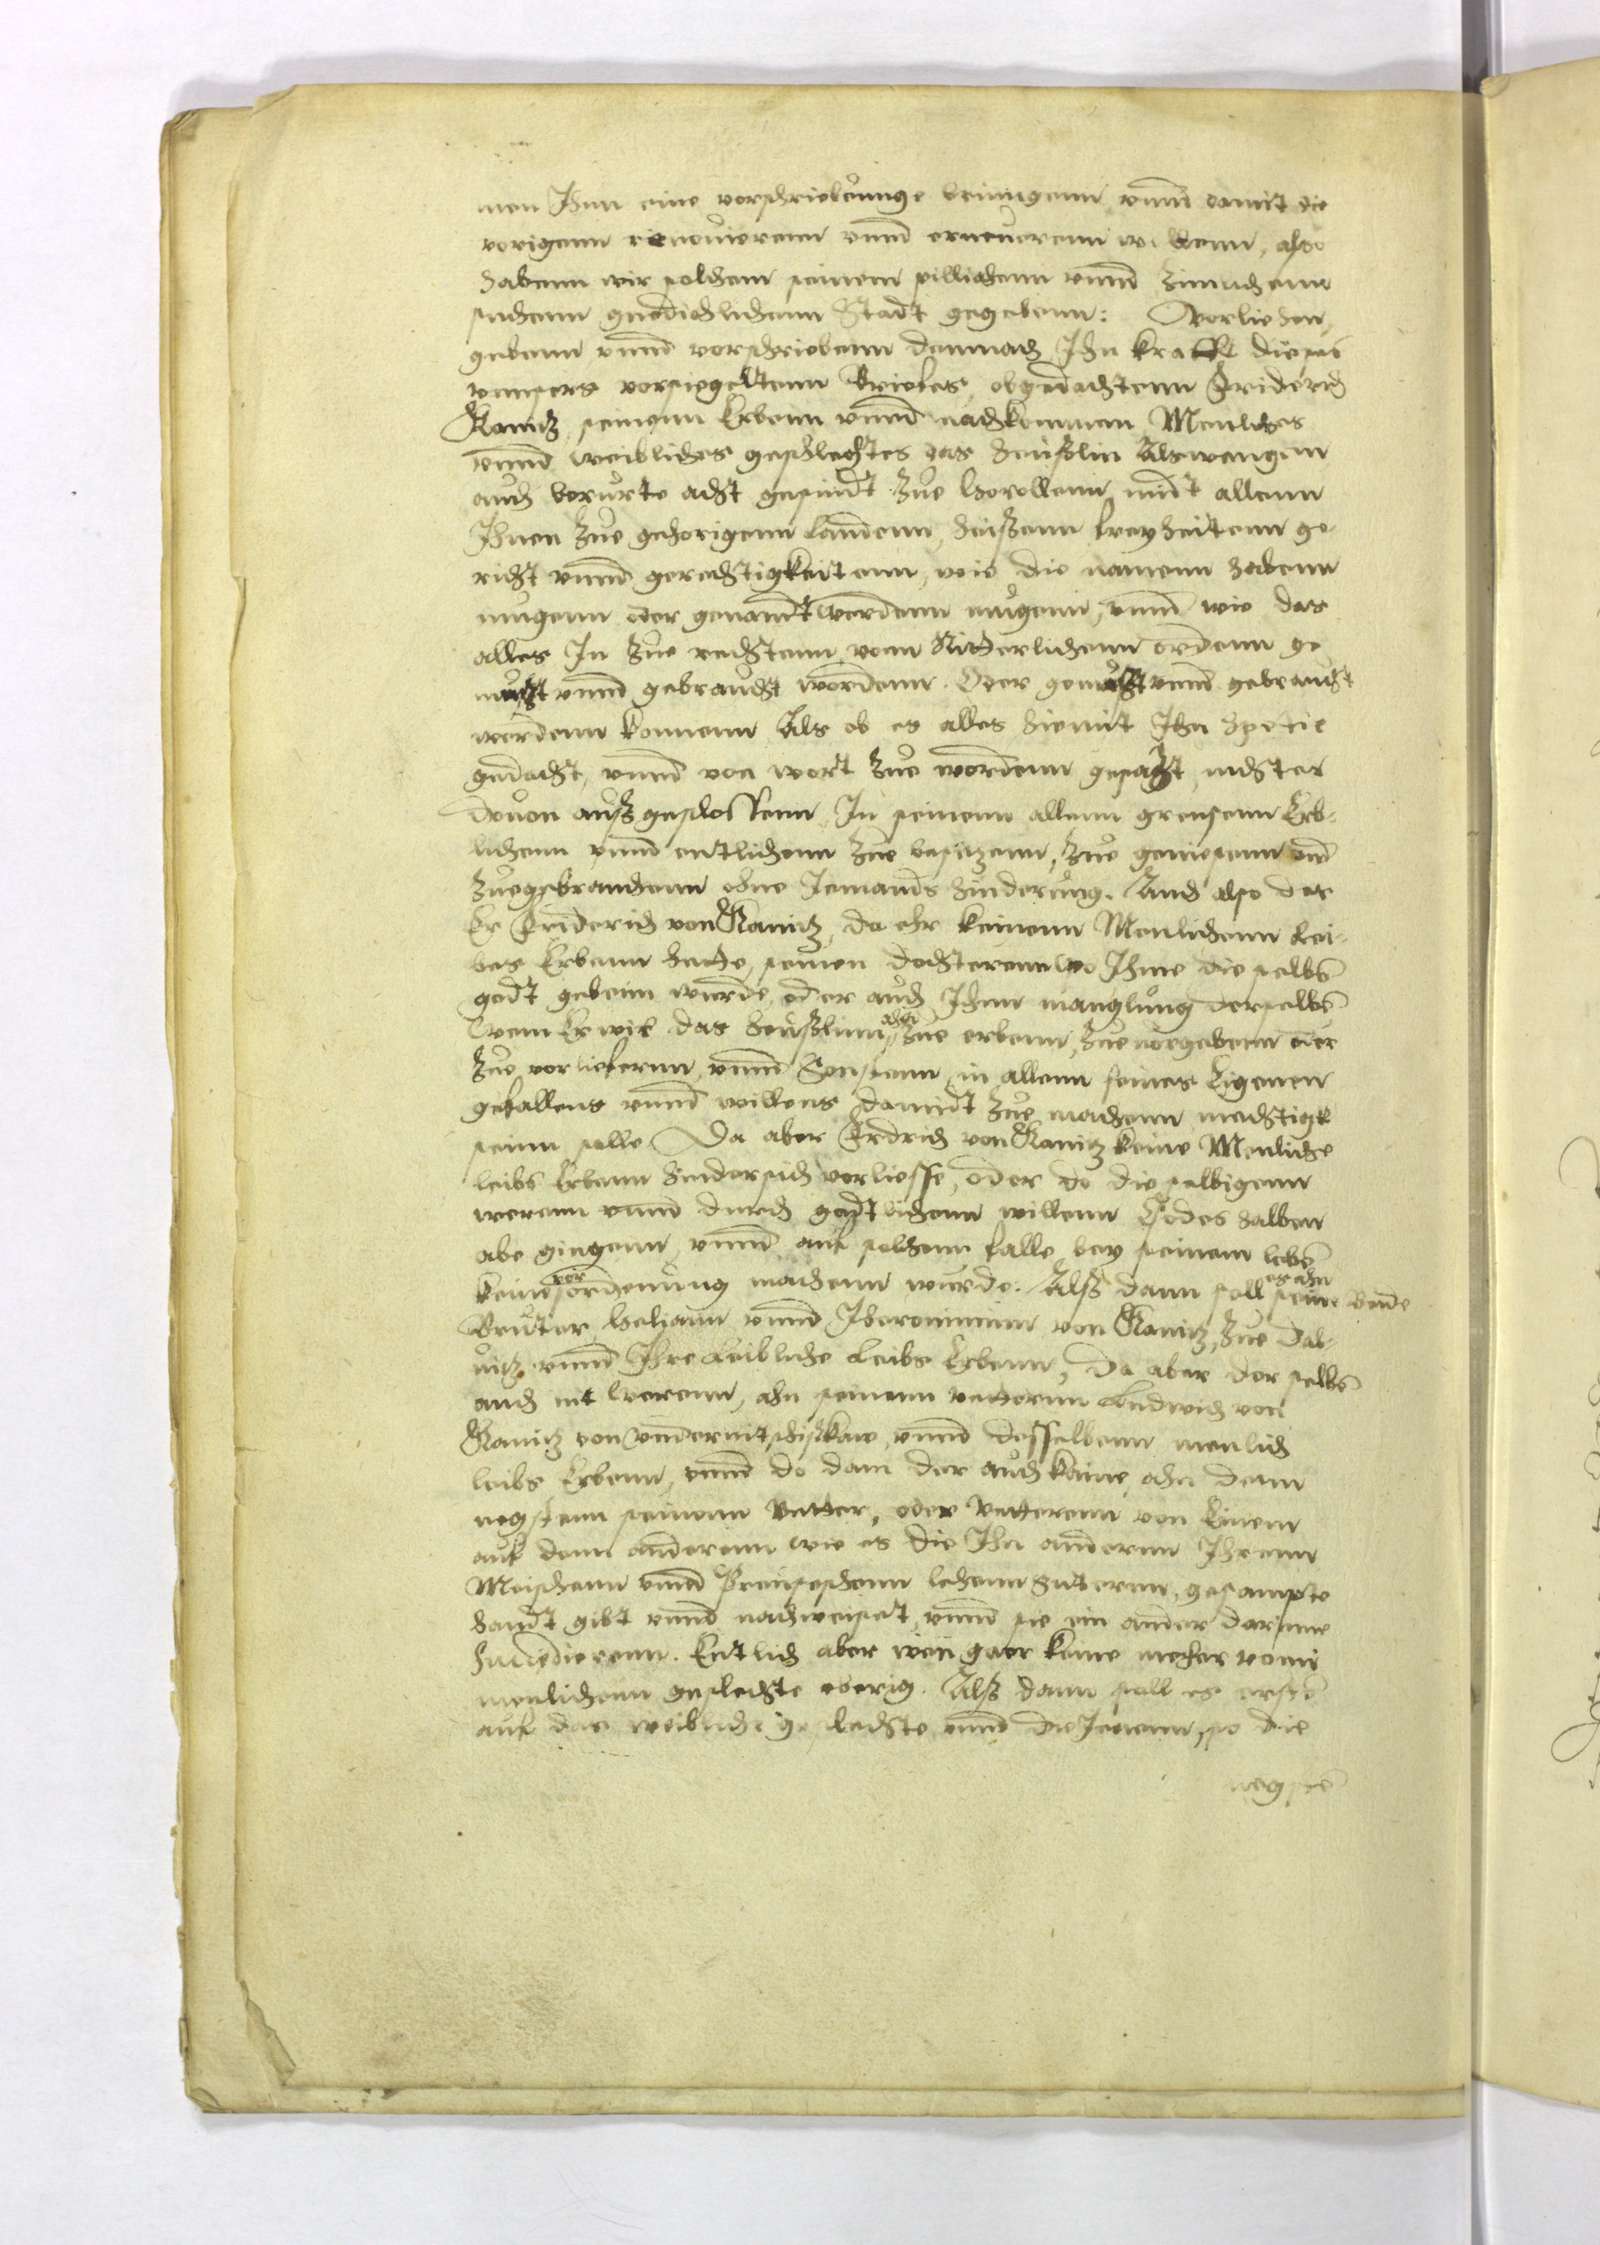 men Ihnn eine vorschriebunge bringenn, vnnd damit die
vorigenn renouierenn vnnd erneuerenn wollenn, also
habenn wir solchem seinem pillichenn vnnd zimlichenn
suchenn gnedichlichenn Stadt gegebenn: Vorliehen,
gebenn vnnd vorschriebenn demnach Ihn krafft dieses
vnnsers vorsiegeltenn Briefes, obgedachtenn Friderich
Kanitz, seinenn Erbenn vnnd nachkommen Menliches
vnnd weibliches geschlechtes das heußlin Alswangen
auch berurte acht gesindt zue midt allenn
Ihnen zue gehorigenn landenn, freyheitenn ge-
richt vnnd gerechtigkeitenn, wie die namenn habenn
mugenn oder genandt werdenn mugenn, vnnd wie das
alles In zue rechtenn vom Ritterlichenn ordenn ge
nutzt vnnd gebraucht wordenn. Oder genutzt vnnd gebraucht
werdenn konnenn Als ob es alles hiemit Ihn Spetie
gedacht, vnnd von wort zue wordenn gesatzt, nichtes
douon außgeschlossenn, In seinenn allenn grensenn Erb-
lichenn vnnd entlichenn zue besitzenn, zue geniesenn vnd
zuegebrauchenn ohne Iemands hinderung. Auch also das
Er Friderich von Kanitz, da ehr keinenn Menlichenn Lei-
bes Erbenn hette, seinen dochterenn wo Ihme die selbē
godt gebenn wurde, oder auch Ihnn manglung derselbē
wem Er wil das heußlinn alhie zue erbenn, zueuorgebenn oder
zue vorliefernn, vnnd Sonstenn in allenn seines Eigenen
gefallens vnnd willens damidt zue machenn mechtigk
seinn solle. Da aber Fridrich von Kanitz keine Menliche
leibs Erbenn hindersich vorliesse, oder do die selbigenn
werenn vnnd durch godtlichenn willenn Todes halben
abe gingenn, vnnd auf solchenn falle, bey seinem lebē
keine vorordenung machenn wurde. Alß dann soll es ahn seine beide
Bruder, vnnd Iheronimum von Kanitz, zue Dal-
uitz vnnd Ihre Leibliche Leibs Erbenn, Da aber der selbē
auch nit werenn, ahn seinenn vetternn Ludwich von
Kanitz von vnnd desselbenn menlich
leibs Erbenn, vnnd do dann der auch keine, ahn denn
negstenn seinenn Vetter, oder Vetterenn von Einem
auf denn anderenn wie es die Ihn anderenn Ihrenn
Meischenn vnnd Preusischenn lehenn guterenn, gesampte
handt gibt vnnd nachweiset, vnnd sie ein ander darinne
Succedierenn. Entlich aber wen gaer keine meher vomi
menlichenn geschlechte oberig. Alß dann soll es erstē
auf das weibliche geschlechte vnnd die Ienenn, so die
negstē